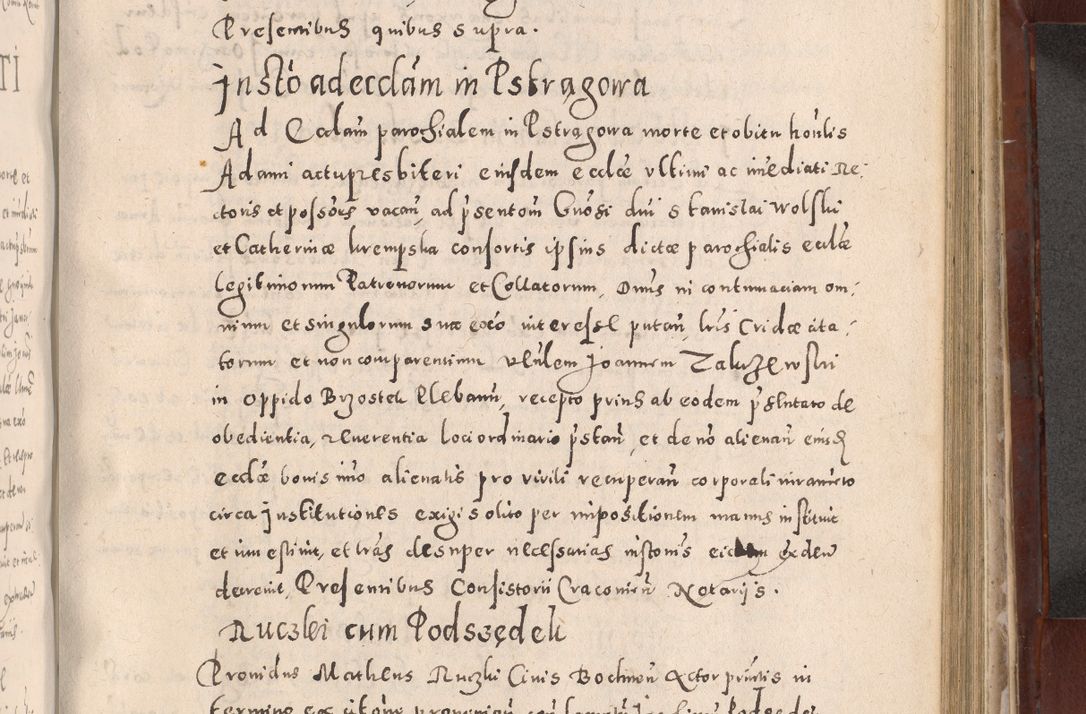 Presentibus quibus supra.
Insto ad eccłam in Pstrągowa
Ad Eccłam parochialem in Pstrągowa morte et obitu honlis
Adami actu presbiteri eiusdem eccłæ ultimi ac imediati Re-
ctoris et possoris vacan, ad pñsentom Gnosi dni Stanislai Wolski
et Catherinæ krempska consortis ipsius dictæ parochialis eccłæ
legittimorum Patronorum et Collatorum, Dnus in contumaciam om-
nium et singulorum sua exo interesse putan, lris Cridæ cita-
torum et non comparentium vēnlem Joannem Zaluzewski
in oppido Brzostek Plebanũ, recepto prius ab eodem pñsentato de
obedientia, reverentia loci ordinario pñstan, et de no alienan eiusd
eccłæ bonis imo alienatis pro virili recuperan corporali iuramento
circa Institutiones exigi solito per impositionem manus instituit
et investivit, et lras desuper necessarias instonis ex den
decrevit, Presentibus Consistorii Cracovien Notarijs.
Ruczki cum Podsędek
Providus Matheus Ruczki Civis Bochnen Actor principalis in